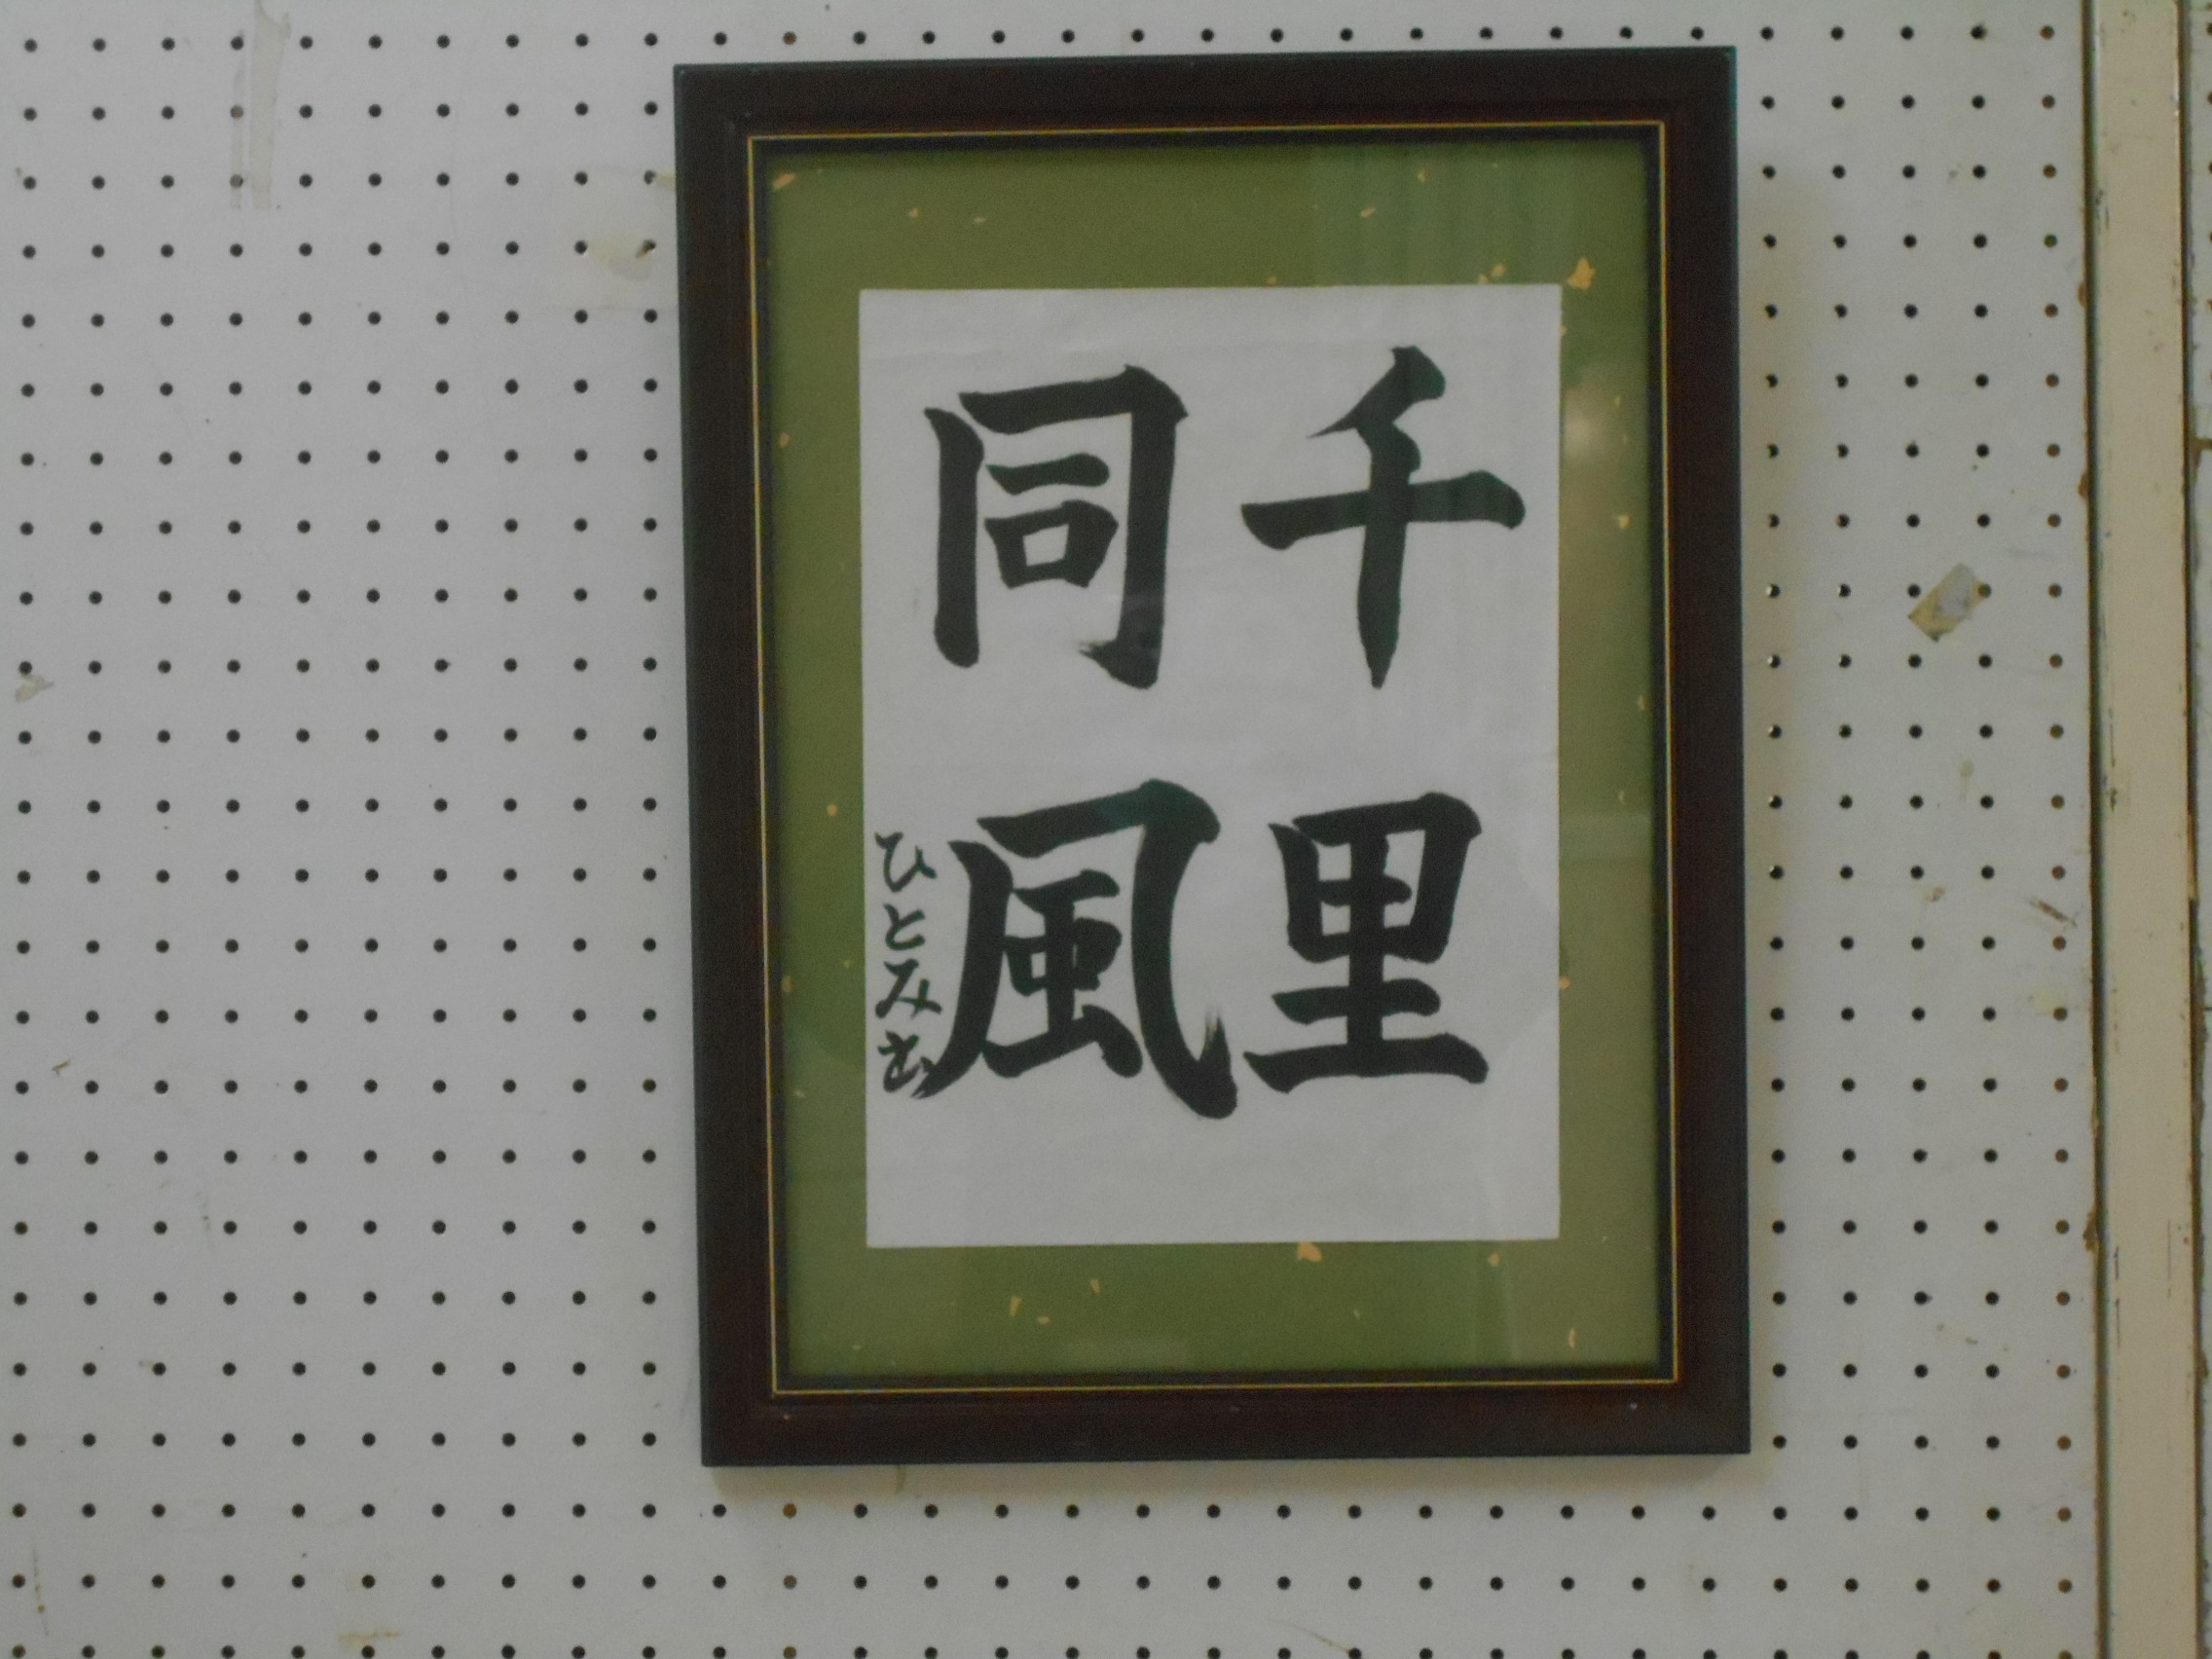 千里
同風
ひとみ書